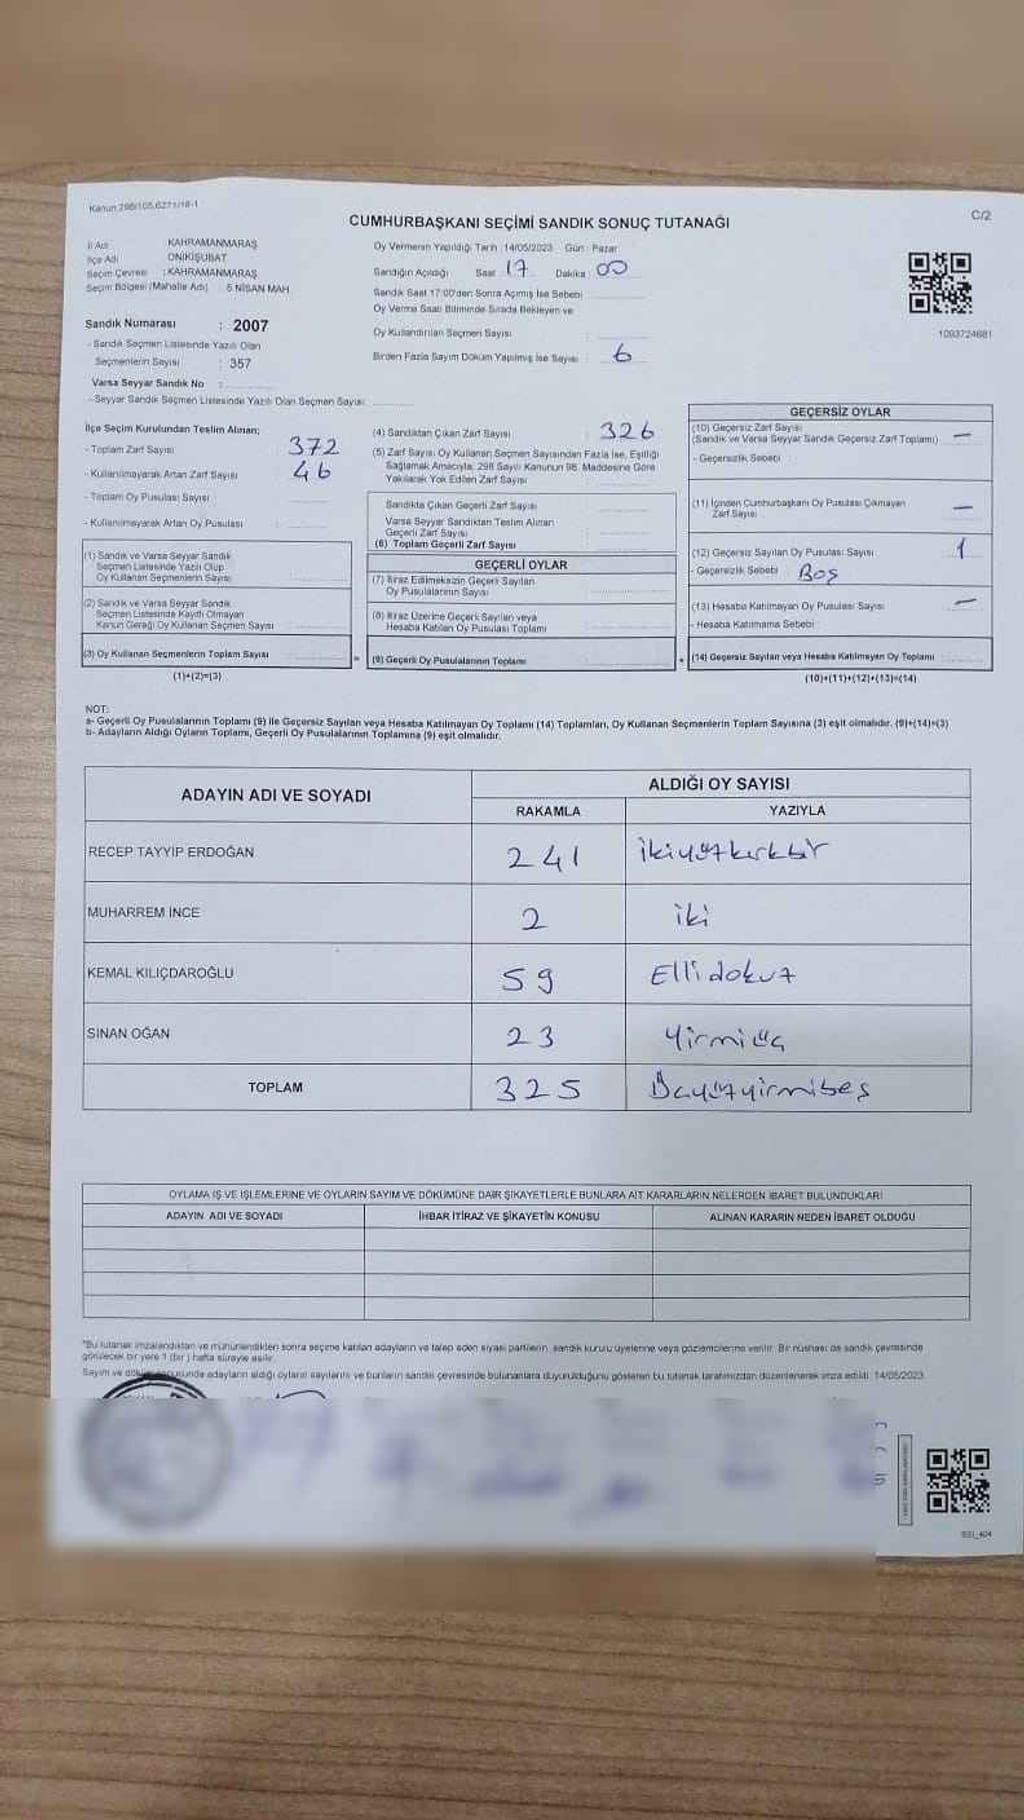 Kanun 298/105,6271/18-1
C/2
CUMHURBAŞKANI SEÇİMİ SANDIK SONUÇ TUTANAĞI
İl Adı KAHRAMANMARAŞ
İlçe Adı ONİKİŞUBAT
Seçim Çevresi : KAHRAMANMARAŞ
Seçim Bölgesi (Mahalle Adı) 5 NİSAN MAH
Sandık Numarası : 2007
- Sandık Seçmen Listesinde Yazılı Olan
Seçmenlerin Sayısı : 357
Varsa Seyyar Sandık No :
- Seyyar Sandık Seçmen Listesinde Yazılı Olan Seçmen Sayısı
Oy Vermenin Yapıldığı Tarih 14/05/2023 Gün Pazar
Sandığın Açıldığı Saat 17 Dakika 00
Sandık Saat 17:00'den Sonra Açılmış İse Sebebi
Oy Verme Saati Bitiminde Sırada Bekleyen ve
Oy Kullandırılan Seçmen Sayısı
Birden Fazla Sayım Döküm Yapılmış İse Sayısı 6
1093724681
İlçe Seçim Kurulundan Teslim Alınan;
- Toplam Zarf Sayısı 372
- Kullanılmayarak Artan Zarf Sayısı 46
- Toplam Oy Pusulası Sayısı
- Kullanılmayarak Artan Oy Pusulası
(1) Sandık ve Varsa Seyyar Sandık
Seçmen Listesinde Yazılı Olup
Oy Kullanan Seçmenlerin Sayısı
(2) Sandık ve Varsa Seyyar Sandık
Seçmen Listesinde Kayıtlı Olmayan
Kanun Gereği Oy Kullanan Seçmen Sayısı
(3) Oy Kullanan Seçmenlerin Toplam Sayısı
(1)+(2)=(3)
(4) Sandıktan Çıkan Zarf Sayısı 326
(5) Zarf Sayısı Oy Kullanan Seçmen Sayısından Fazla İse, Eşitliği
Sağlamak Amacıyla, 298 Sayılı Kanunun 98. Maddesine Göre
Yakılarak Yok Edilen Zarf Sayısı
Sandıkta Çıkan Geçerli Zarf Sayısı
Varsa Seyyar Sandıktan Teslim Alınan
Geçerli Zarf Sayısı
(6) Toplam Geçerli Zarf Sayısı
GEÇERLİ OYLAR
(7) İtiraz Edilmeksizin Geçerli Sayılan
Oy Pusulalarının Sayısı
(8) İtiraz Üzerine Geçerli Sayılan veya
Hesaba Katılan Oy Pusulası Toplamı
= (9) Geçerli Oy Pusulalarının Toplamı
GEÇERSİZ OYLAR
(10) Geçersiz Zarf Sayısı
(Sandık ve Varsa Seyyar Sandık Geçersiz Zarf Toplamı) —
- Geçersizlik Sebebi
(11) İçinden Cumhurbaşkanı Oy Pusulası Çıkmayan
Zarf Sayısı —
(12) Geçersiz Sayılan Oy Pusulası Sayısı 1
- Geçersizlik Sebebi Boş
(13) Hesaba Katılmayan Oy Pusulası Sayısı —
- Hesaba Katılmama Sebebi
+ (14) Geçersiz Sayılan veya Hesaba Katılmayan Oy Toplamı
(10)+(11)+(12)+(13)=(14)
NOT:
a- Geçerli Oy Pusulalarının Toplamı (9) ile Geçersiz Sayılan veya Hesaba Katılmayan Oy Toplamı (14) Toplamları, Oy Kullanan Seçmenlerin Toplam Sayısına (3) eşit olmalıdır. (9)+(14)=(3)
b- Adayların Aldığı Oyların Toplamı, Geçerli Oy Pusulalarının Toplamına (9) eşit olmalıdır.
ADAYIN ADI VE SOYADI
ALDIĞI OY SAYISI
RAKAMLA YAZIYLA
RECEP TAYYİP ERDOĞAN 241 ikiyüzkırkbir
MUHARREM İNCE 2 iki
KEMAL KILIÇDAROĞLU 59 Ellidokuz
SİNAN OĞAN 23 Yirmiüç
TOPLAM 325 Üçyüzyirmibeş
OYLAMA İŞ VE İŞLEMLERİNE VE OYLARIN SAYIM VE DÖKÜMÜNE DAİR ŞİKAYETLERLE BUNLARA AİT KARARLARIN NELERDEN İBARET BULUNDUKLARI
ADAYIN ADI VE SOYADI İHBAR İTİRAZ VE ŞİKAYETİN KONUSU ALINAN KARARIN NEDEN İBARET OLDUĞU
*Bu tutanak imzalandıktan ve mühürlendikten sonra seçime katılan adayların ve talep eden siyasi partilerin, sandık kurulu üyelerine veya gözlemcilerine verilir. Bir nüshası da sandık çevresinde
görülecek bir yere 1 (bir) hafta süreyle asılır.
Sayım ve döküm sonucunda adayların aldığı oyların sayılarını ve bunların sandık çevresinde bulunanlara duyurulduğunu gösteren bu tutanak tarafımızdan düzenlenerek imza edildi. 14/05/2023